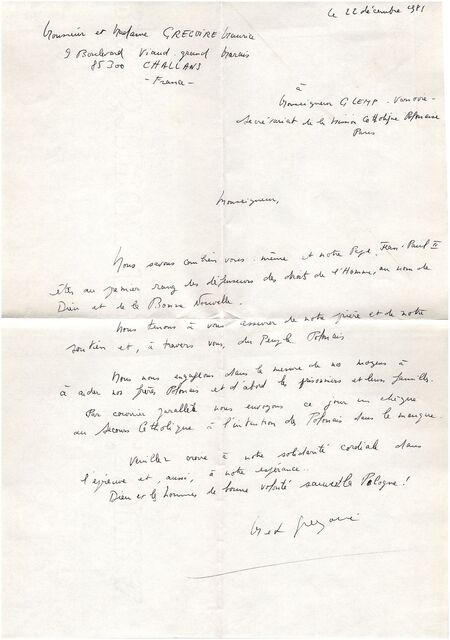 le 22 décembre 1981
Monsieur et Madame GREGOIRE Maurice
9 Boulevard Viaud grand Marais
85300 CHALLANS
- France -
à
Monseigneur GLEMP - Varsovie -
Secrétariat de la Mission Catholique Polonaise
Paris
Monseigneur,
Nous savons combien vous-même et notre Pape Jean-Paul II
êtes au premier rang des défenseurs des droits de l'Homme, au nom de
Dieu et de la Bonne Nouvelle.
Nous tenons à vous assurer de notre prière et de notre
soutien et, à travers vous, du Peuple Polonais
Nous nous engageons dans la mesure de nos moyens à
à aider nos frères Polonais et d'abord les prisonniers et leurs familles.
Par courrier parallèle nous envoyons ce jour un chèque
au Secours Catholique à l'intention des Polonais dans le manque.
Veuillez croire à notre solidarité cordiale dans
l'épreuve et, aussi, à notre espérance.
Dieu et les hommes de bonne volonté sauvent la Pologne !
Gregoire